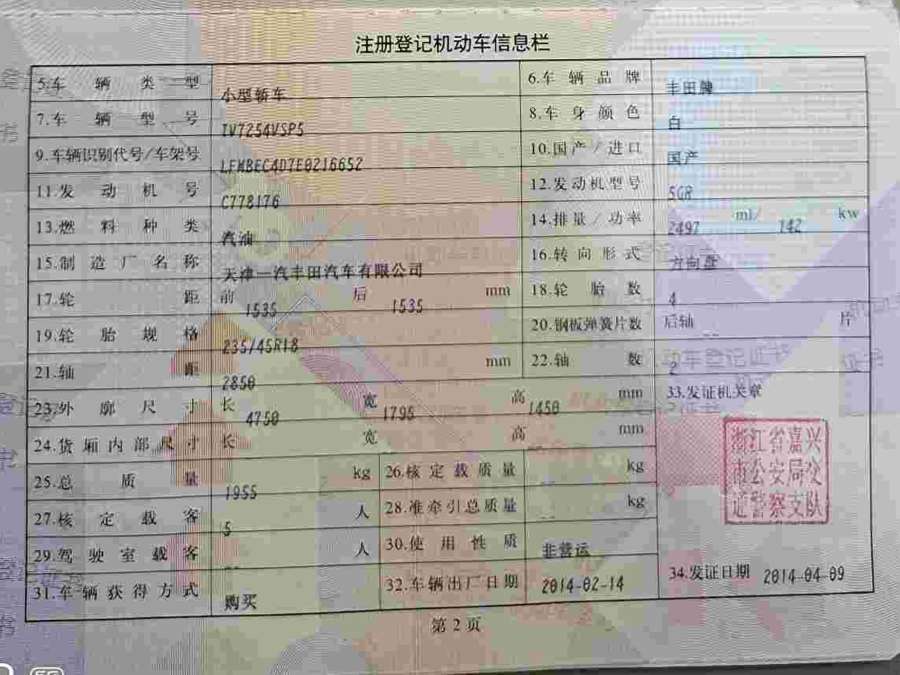 注册登记机动车信息栏
5.车辆类型 小型轿车 6.车辆品牌 丰田牌
7.车辆型号 TV7254VSP5 8.车身颜色 白
9.车辆识别代号/车架号 LFMBEC4D7E0216652 10.国产/进口 国产
11.发动机号 C778176 12.发动机型号 5GR
13.燃料种类 汽油 14.排量/功率 2497 ml/ 142 kw
15.制造厂名称 天津一汽丰田汽车有限公司 16.转向形式 方向盘
17.轮距 前 1535 后 1535 mm 18.轮胎数 4
19.轮胎规格 235/45R18 20.钢板弹簧片数 后轴 -- 片
21.轴距 2850 mm 22.轴数 2
23.外廓尺寸 长 4750 宽 1795 高 1450 mm 33.发证机关章
24.货厢内部尺寸 长 宽 高 mm
浙江省嘉兴
市公安局交
通警察支队
25.总质量 1955 kg 26.核定载质量 -- kg
27.核定载客 5 人 28.准牵引总质量 -- kg
29.驾驶室载客 -- 人 30.使用性质 非营运
31.车辆获得方式 购买 32.车辆出厂日期 2014-02-14 34.发证日期 2014-04-09
第2页